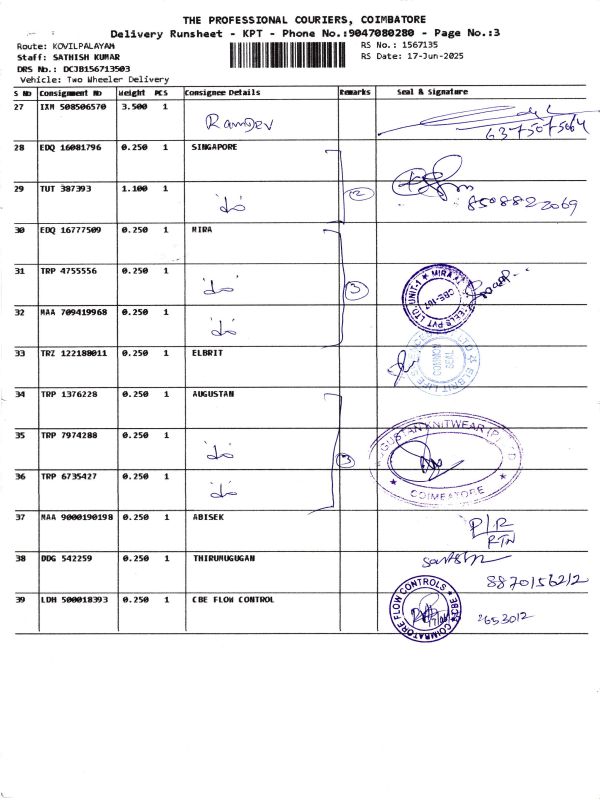 THE PROFESSIONAL COURIERS, COIMBATORE
Delivery Runsheet - KPT - Phone No.:9047080280 - Page No.:3
Route: KOVILPALAYAM
RS No.: 1567135
Staff: SATHISH KUMAR
RS Date: 17-Jun-2025
DRS No.: DCJB156713503
Vehicle: Two Wheeler Delivery
S No Consignment No Weight PCS Consignee Details Remarks Seal & Signature
27 IXM 508506570 3.500 1 Ramdev
6375075064
28 EDQ 16081796 0.250 1 SINGAPORE
29 TUT 387393 1.100 1 do 2
8508822069
30 EDQ 16777509 0.250 1 MIRA
31 TRP 4755556 0.250 1 do 3
MIRA UNIT-1 CBE-107 PVT LTD
32 MAA 709419968 0.250 1 do
33 TRZ 122188011 0.250 1 ELBRIT
ELBRIT LIFE COMMON SEAL
34 TRP 1376228 0.250 1 AUGUSTAN
35 TRP 7974288 0.250 1 do 3
AUGUSTAN KNITWEAR (P) LTD
COIMBATORE
36 TRP 6735427 0.250 1 do
37 MAA 9000190198 0.250 1 ABISEK
P/R
RTN
38 DDG 542259 0.250 1 THIRUMUGUGAN
8870156212
39 LDH 500018393 0.250 1 CBE FLOW CONTROL
COIMBATORE FLOW CONTROLS CBE